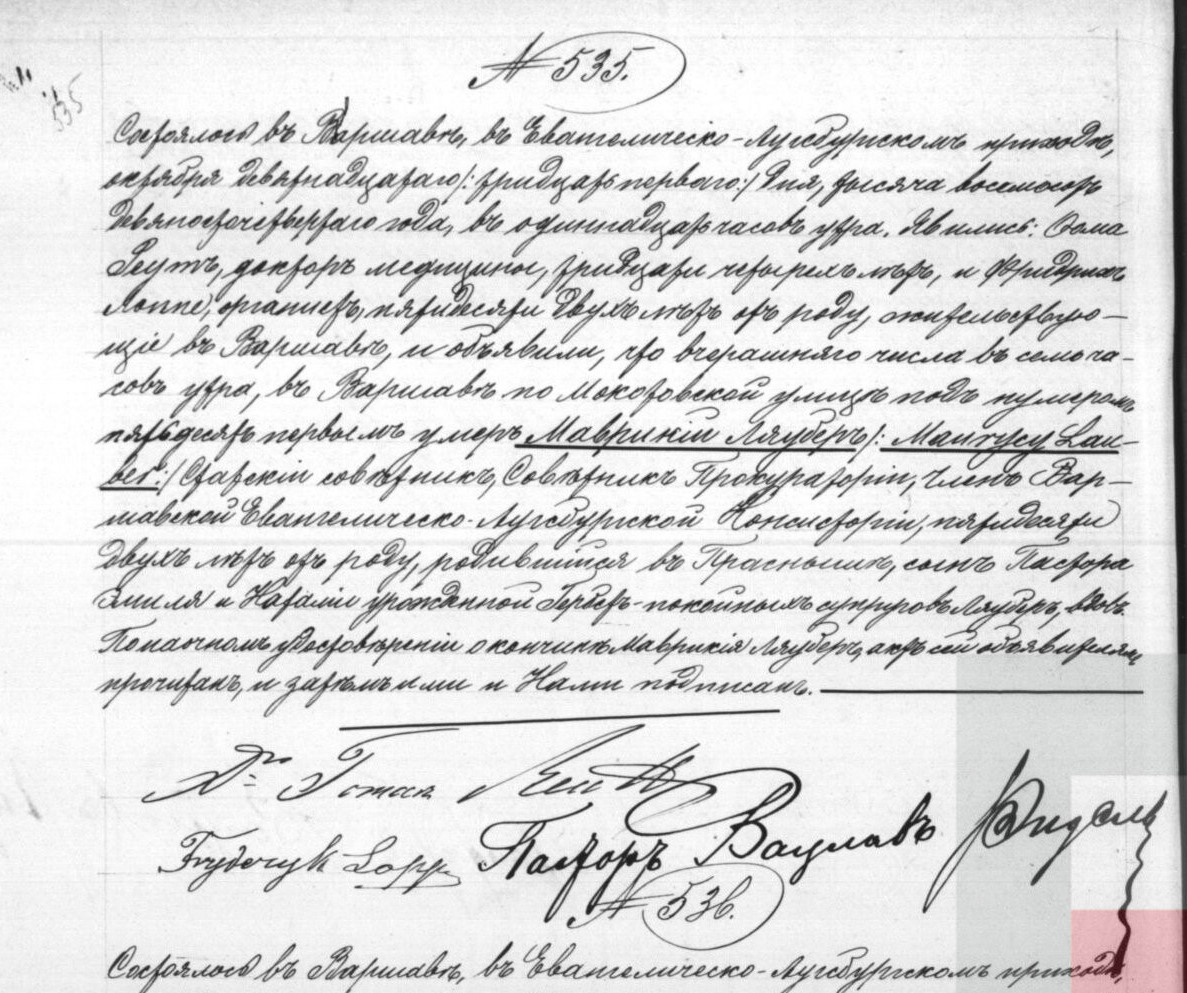 № 535.
535
Состоялось въ Варшавѣ, въ Евангелическо-Аугсбургскомъ приходѣ,
октября девятнадцатаго /: тридцать перваго :/ дня, тысяча восемьсотъ
девяносточетвертаго года, въ одиннадцать часовъ утра. Явились: Ѳома
докторъ медицины, тридцати четырехъ лѣтъ, и Фридрихъ
Лоппе, органистъ, пятидесяти двухъ лѣтъ отъ роду, жительствую-
щіе въ Варшавѣ, и объявили, что вчерашняго числа въ семь ча-
совъ утра, въ Варшавѣ по Мокотовской улицѣ подъ нумеромъ
пятьдесятъ первымъ умеръ Маврикій Ляуберъ /: Maurycy Lau-
ber :/ Статскій совѣтникъ, Совѣтникъ Прокураторіи, Членъ Вар-
шавской Евангелическо-Аугсбургской Консисторіи, пятидесяти
двухъ лѣтъ отъ роду, родившійся въ Праснышѣ, сынъ Пастора
Эмиля и Наталіи урожденной Герберъ - покойныхъ супруговъ Ляуберъ, вдовъ.
По личномъ удостовѣреніи о кончинѣ Маврикія Ляуберъ, актъ сей объявителямъ
прочитанъ, и затѣмъ ими и Нами подписанъ.
Dr Tomasz
Fryderyk Loppe Пасторъ Вацлавъ
№ 536.
Состоялось въ Варшавѣ, въ Евангелическо-Аугсбургскомъ приходѣ,